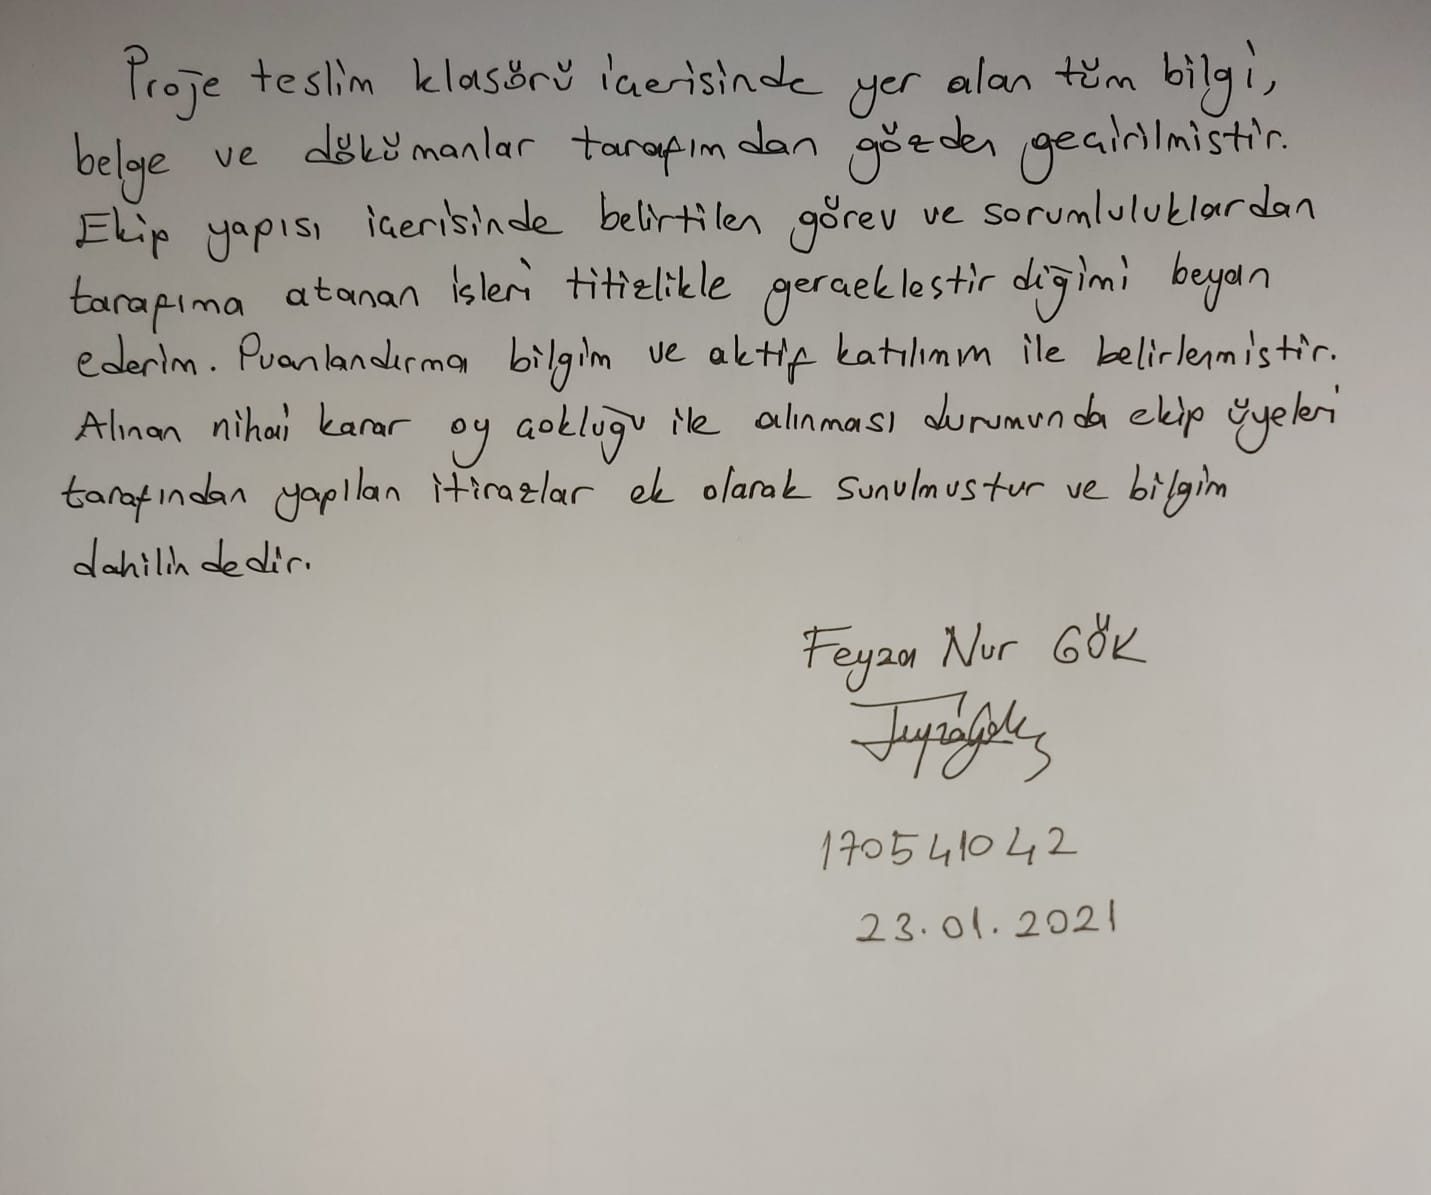 Proje teslim klasörü içerisinde yer alan tüm bilgi,
belge ve dökümanlar tarafımdan gözden geçirilmiştir.
Ekip yapısı içerisinde belirtilen görev ve sorumluluklardan
tarafıma atanan işleri titizlikle gerçekleştirdiğimi beyan
ederim. Puanlandırma bilgim ve aktif katılımım ile belirlenmiştir.
Alınan nihai karar oy çokluğu ile alınması durumunda ekip üyeleri
tarafından yapılan itirazlar ek olarak sunulmuştur ve bilgim
dahilindedir.
Feyza Nur GÖK
170541042
23.01.2021